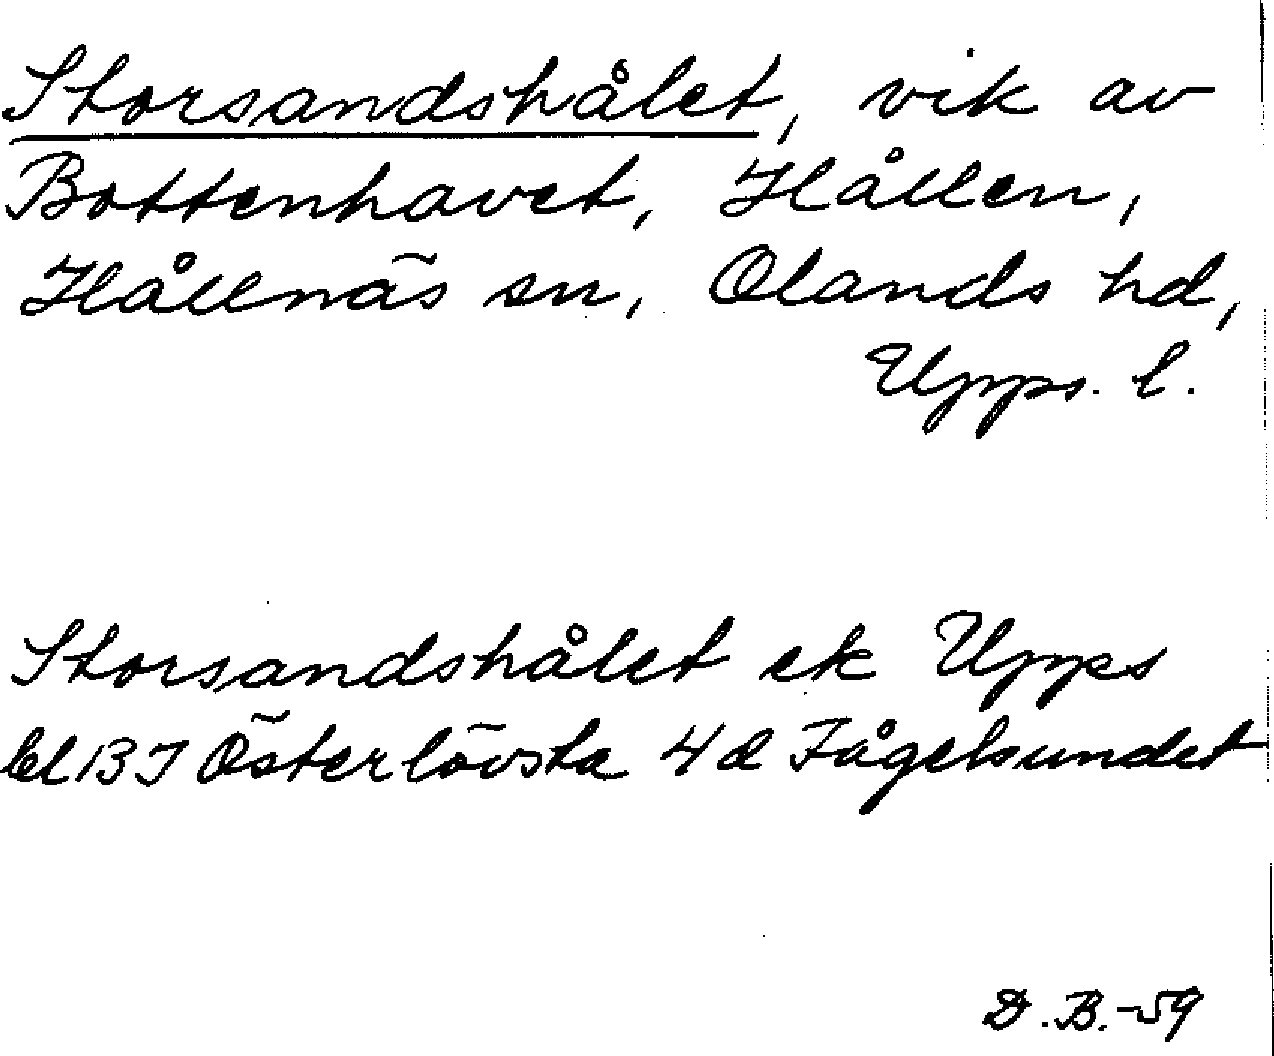 Storsandshålet, vik av
Bottenhavet, Hållen,
Hållnäs sn, Olands hd,
Upps. l.
Storsandshålet ek Upps
bl 13 I Österlövsta 4 d Fågelsundet
D.B.-59